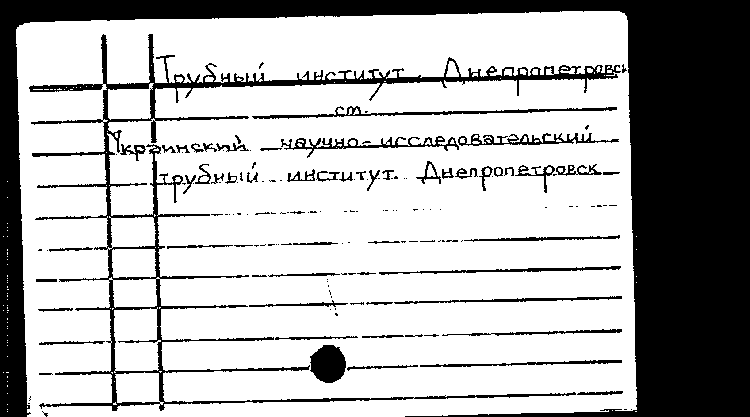 Трубный институт. Днепропетровск
см.
Украинский научно-исследовательский
трубный институт. Днепропетровск